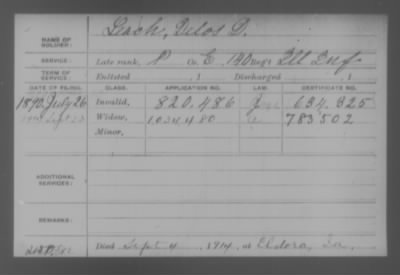 NAME OF SOLDIER: Leach, Delos D.
SERVICE: Late rank, P Co. E, 140 Reg't Ill Inf
TERM OF SERVICE: Enlisted , 1 Discharged , 1
DATE OF FILING. CLASS. APPLICATION NO. LAW. CERTIFICATE NO.
1890 July 26 Invalid, 820.486 634.325
Sept 23 Widow, 1034480 783502
Minor,
ADDITIONAL SERVICES:
REMARKS:
Died Sept 4 1914, at Eldora, Ia.